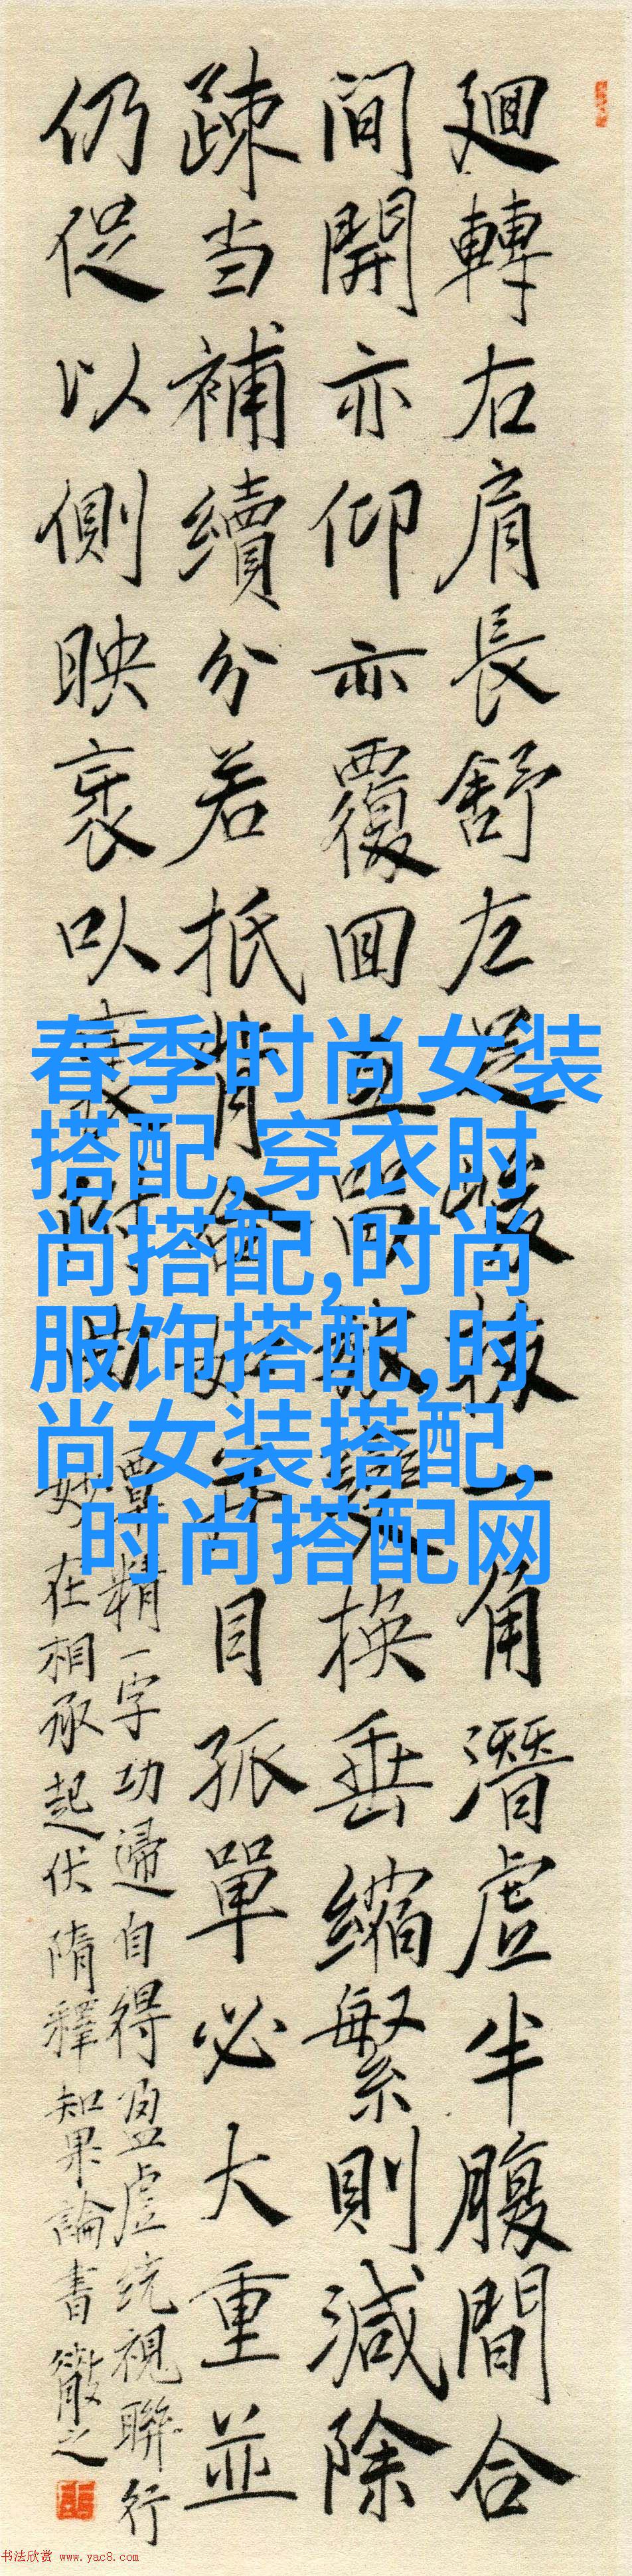 廻轉右肩長舒左足峻拔一角潛虛半腹間合
間開亦仰亦覆回互留放變換垂縮繁則減除
疎当補續分若抵背合如并目孤單必大重並
仍促以側映裹以
覃精一字功歸自得盈虛統視聯行
妙在相承起伏隋釋知果論書徹之
春季时尚女装
搭配,穿衣时
尚搭配,时尚
服饰搭配,时
尚女装搭配,
时尚搭配网
书法欣赏 www.yac8.com